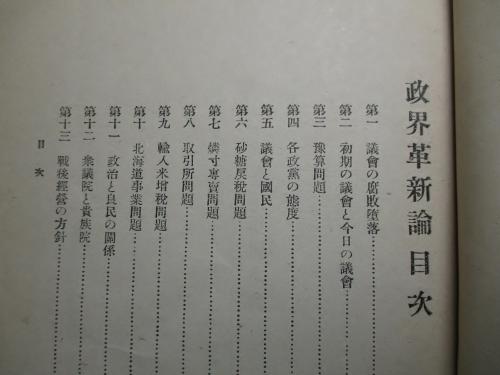 政界革新論目次
第一 議會の腐敗墮落
第二 初期の議會と今日の議會
第三 豫算問題
第四 各政黨の態度
第五 議會と國民
第六 砂糖戾稅問題
第七 燐寸專賣問題
第八 取引所問題
第九 輸入米增稅問題
第十 北海道事業問題
第十一 政治と良民の關係
第十二 衆議院と貴族院
第十三 戰後經營の方針
目次